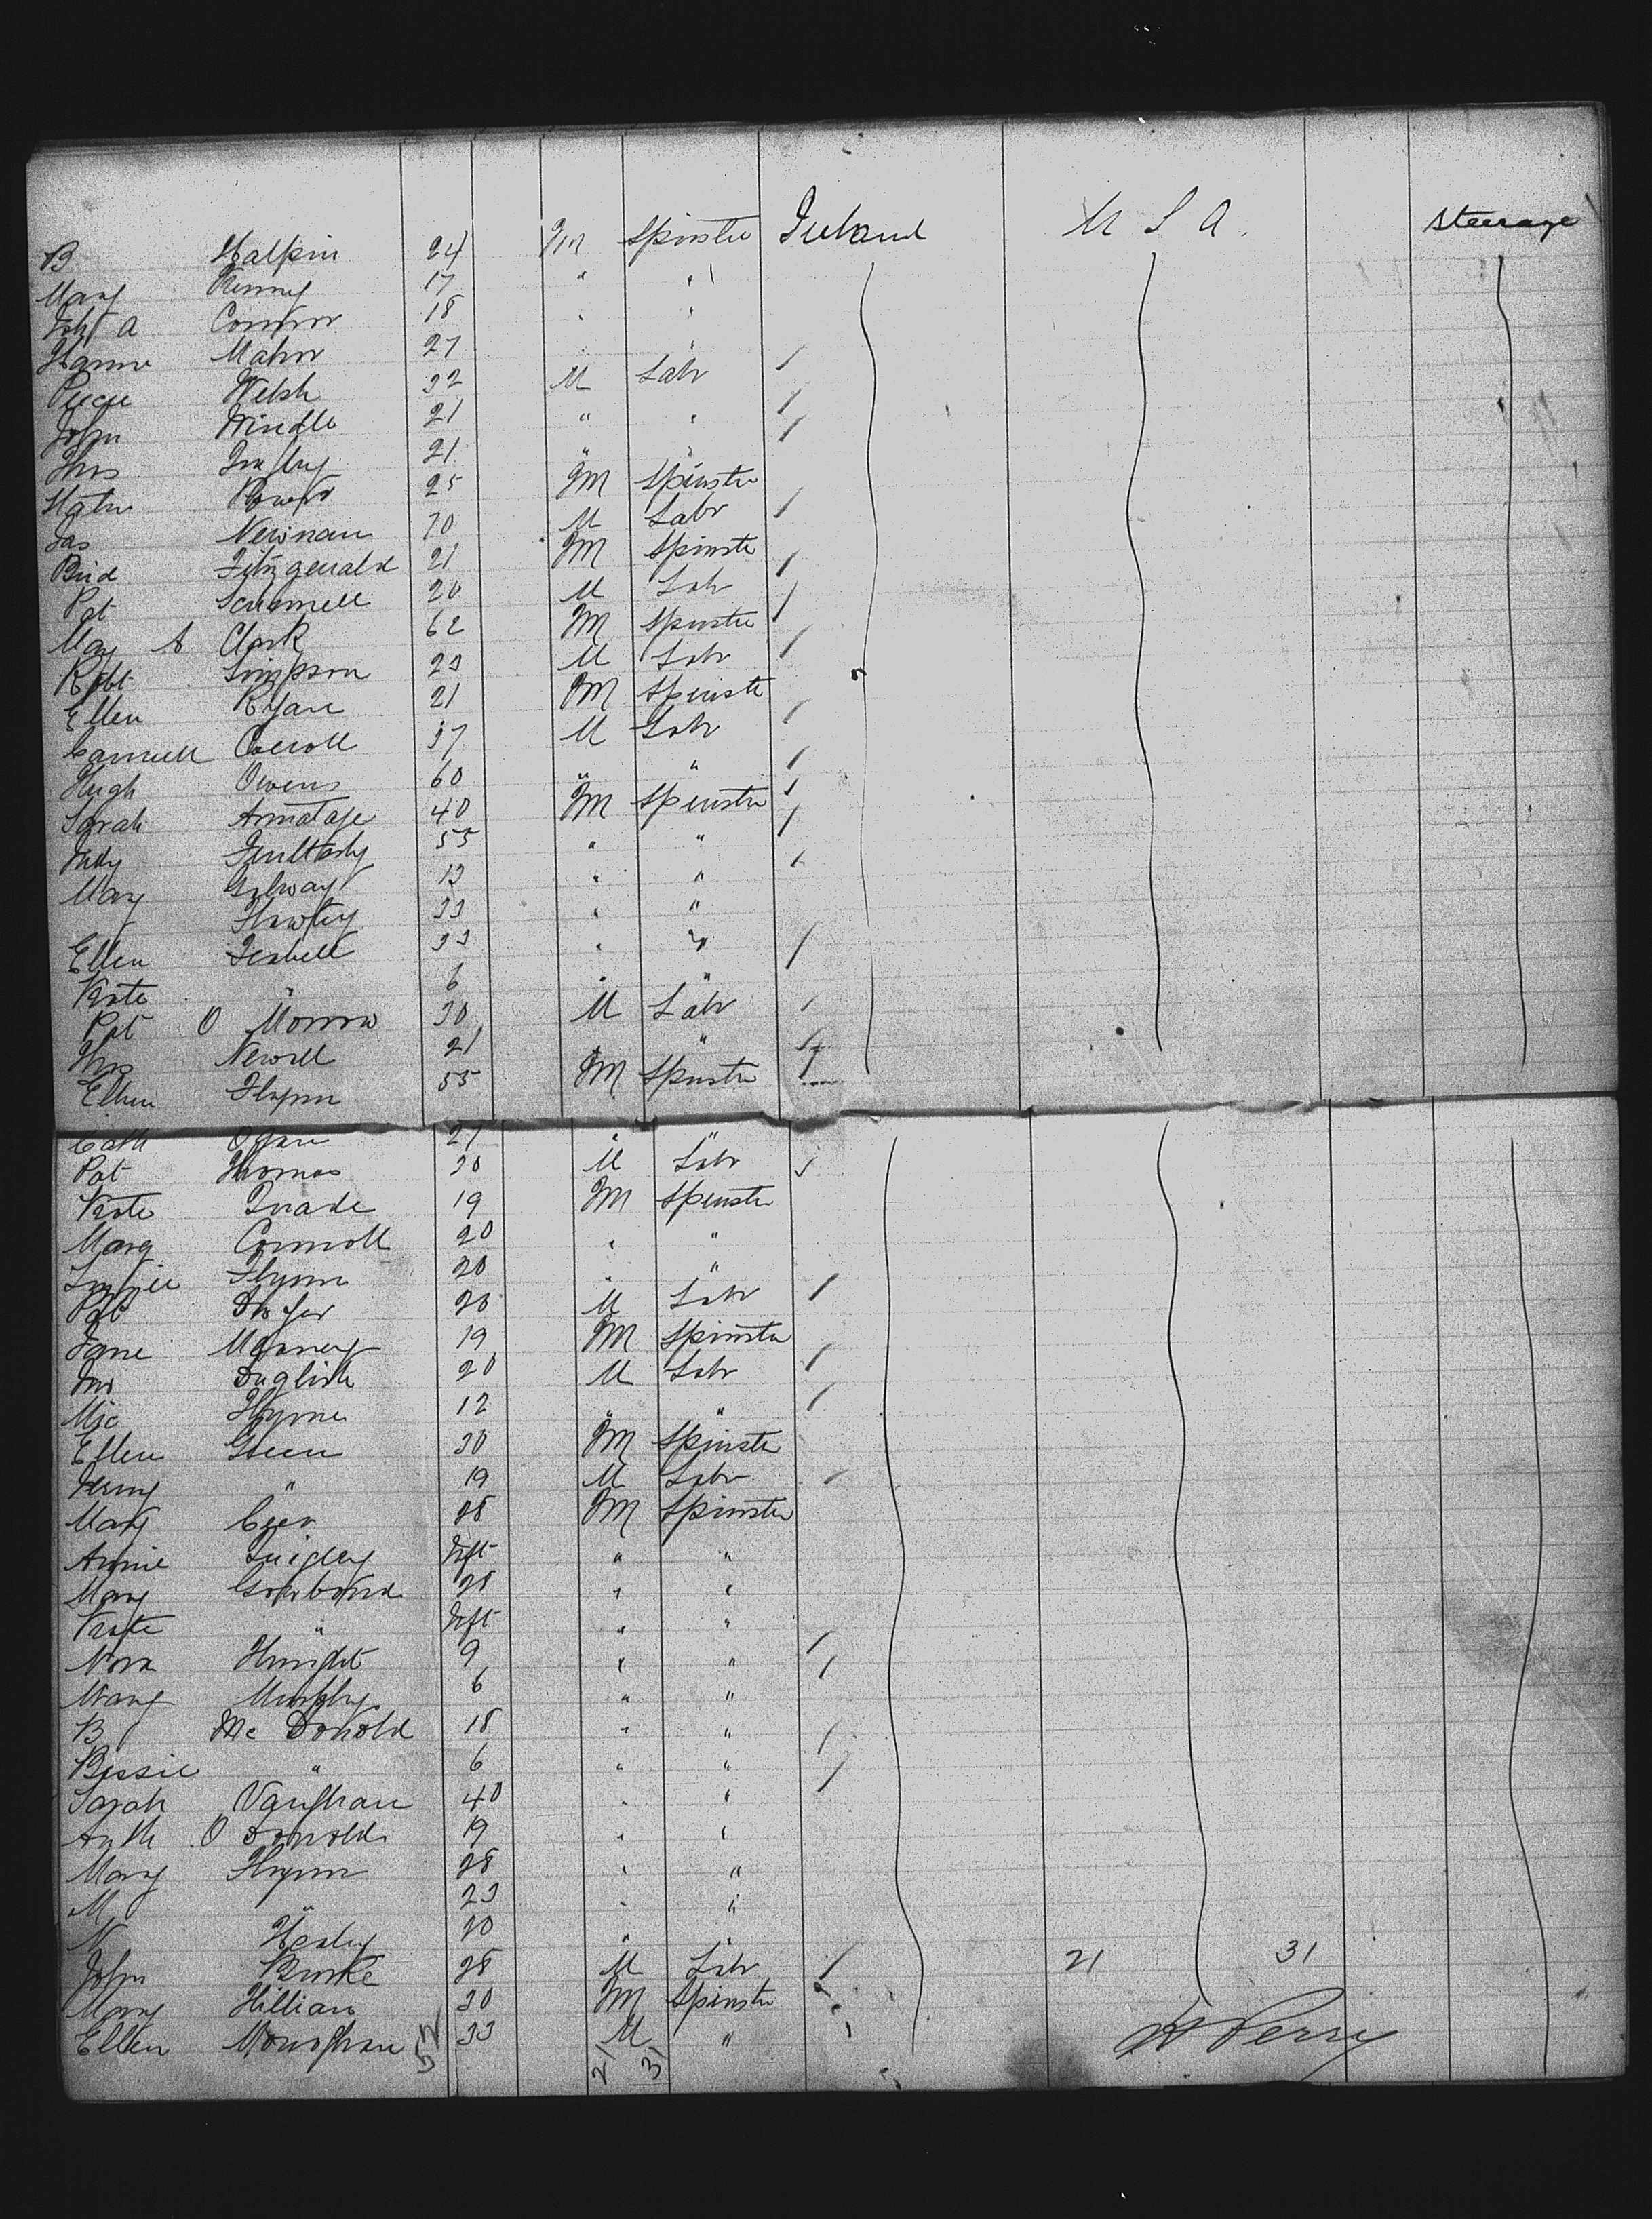 B Halpin 24 Fm Spinster Ireland U S A. Steerage
Mary Kenny 17 " "
A Connor 18 " "
Mahon 27 " "
Welsh 32 M Labr
John Windle 21 " "
Thos 21 " "
Power 25 Fm Spinster
Jas Newman 70 M Labr
Brid Fitzgerald 21 Fm Spinste
Pat Scannell 20 M Labr
May A Clark 62 Fm Spinster
Robt Simpson 23 M Labr
Ellen Ryan 21 Fm Spinste
Carroll 37 M Labr
Hugh Owens 60 " "
Sarah Armatage 40 Fm Spinster
Judy 55 " "
Mary Galway 13 " "
Hawley 33 " "
Ellen Isabell 33 " "
Kate " 6 " "
Pat O 30 M Labr
Thos Newell 21 " "
Ellen Flynn 55 Fm Spinster
Cath 27 " "
Pat Thomas 30 M Labr
Kate Quade 19 Fm Spinster
Marg Connoll 20 " "
Lizzie Flynn 20 " "
Pat Dwyer 20 M Labr
Jane 19 Fm Spinster
Jno English 20 M Labr
Mic 12 " "
Ellen Green 30 Fm Spinste
" 19 M Labr
Mary 28 Fm Spinster
Annie Quigley Inft " "
Mary 28 " "
Kate " Inft " "
Nora 9 " "
Mary Murphy 6 " "
B Mc Donold 18 " "
Bessie " 6 " "
Sarah Vaughan 40 " "
O Donold 19 " "
Mary Flynn 28 " "
M " 23 " "
N Healy 20 " "
John Burke 28 M Labr 21 31
Mary Hillian 30 Fm Spinster
Ellen Monaghan 33 M " H Perry
52 21 31